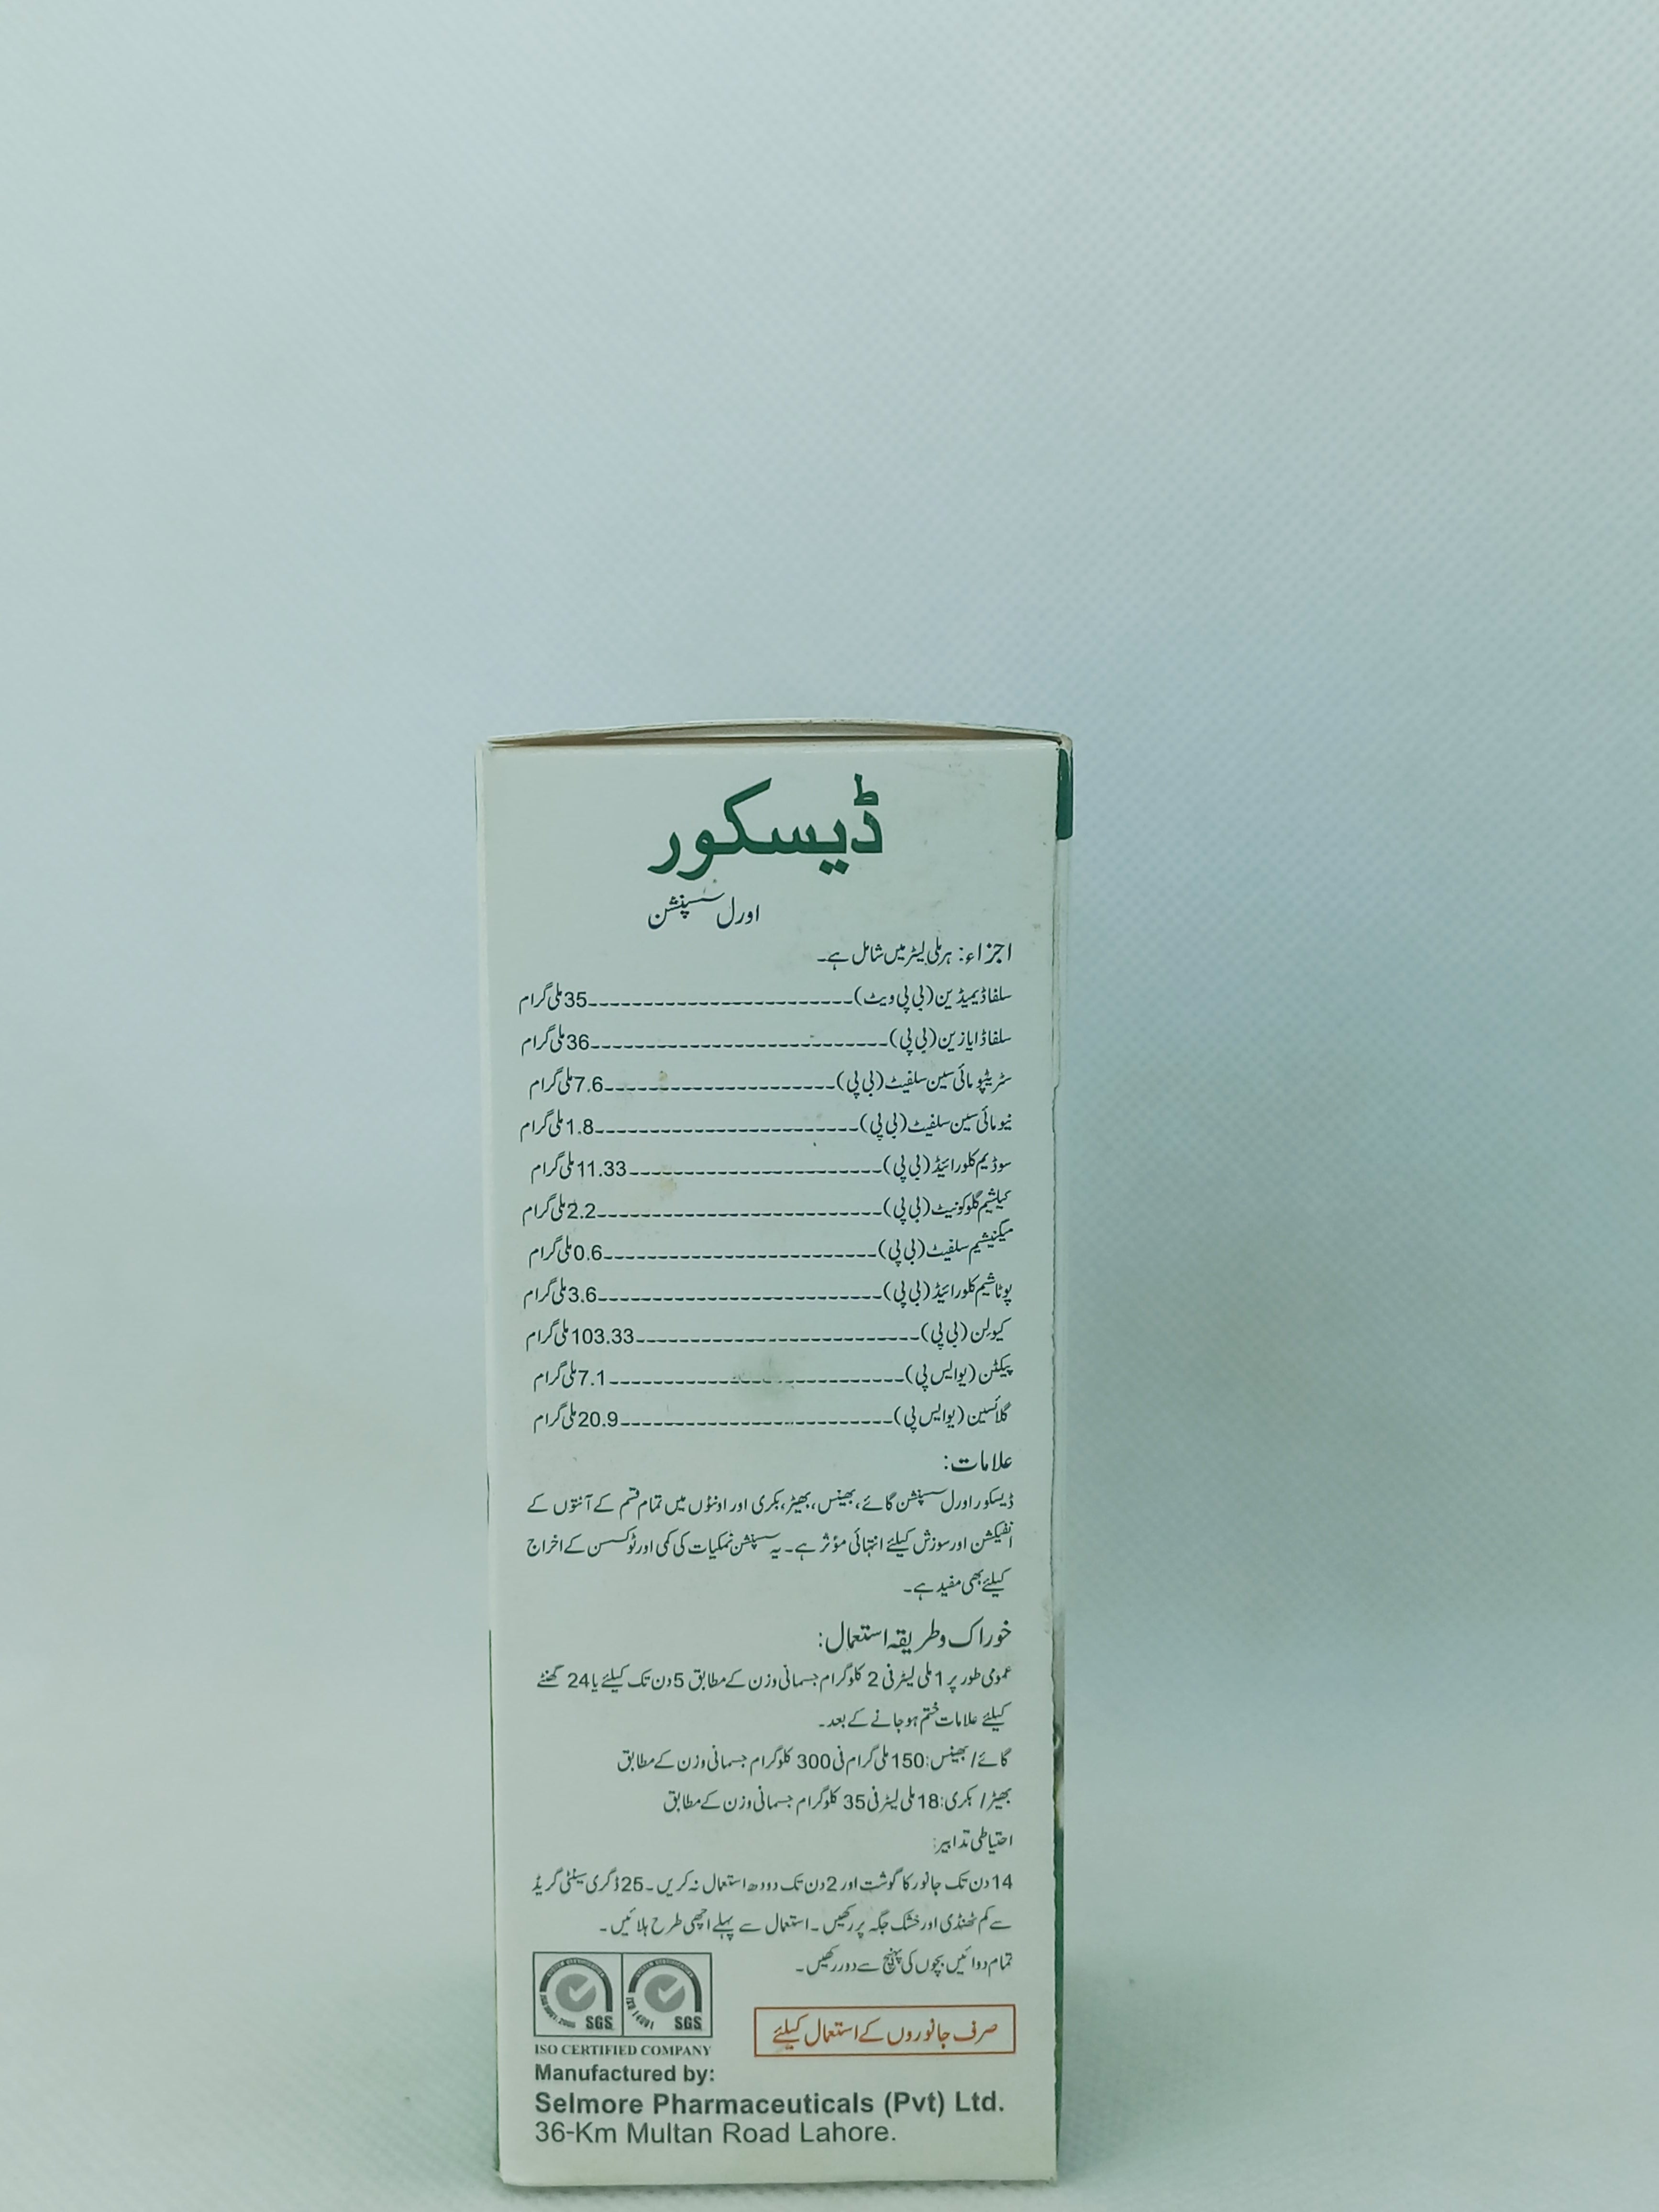 ڈیسکور
اورل سسپنشن
اجزاء: ہر ملی لیٹر میں شامل ہے۔
سلفاڈیمیڈین (بی پی ویٹ)------------------------35 ملی گرام
سلفاڈایازین (بی پی)---------------------------36 ملی گرام
سٹریٹپو مائی سین سلفیٹ (بی پی)---------------------7.6 ملی گرام
نیومائی سین سلفیٹ (بی پی)------------------------1.8 ملی گرام
سوڈیم کلورائیڈ (بی پی)-----------------------11.33 ملی گرام
کیلشیم گلوکونیٹ (بی پی)--------------------------2.2 ملی گرام
میگنیشیم سلفیٹ (بی پی)-------------------------0.6 ملی گرام
پوٹاشیم کلورائیڈ (بی پی)--------------------------3.6 ملی گرام
کیولن (بی پی)--------------------------103.33 ملی گرام
پیکٹن (یو ایس پی)---------------------------7.1 ملی گرام
گلائسین (یو ایس پی)-------------------------20.9 ملی گرام
علامات:
ڈیسکور اورل سسپنشن گائے، بھینس، بھیڑ، بکری اور اونٹوں میں تمام قسم کے آنتوں کے
انفیکشن اور سوزش کیلئے انتہائی مؤثر ہے۔ یہ سسپنشن نمکیات کی کمی اور ٹوکسن کے اخراج
کیلئے بھی مفید ہے۔
خوراک و طریقہ استعمال:
عمومی طور پر 1 ملی لیٹر فی 2 کلوگرام جسمانی وزن کے مطابق 5 دن تک کیلئے یا 24 گھنٹے
کیلئے علامات ختم ہو جانے کے بعد۔
گائے / بھینس: 150 ملی گرام فی 300 کلوگرام جسمانی وزن کے مطابق
بھیڑ / بکری: 18 ملی لیٹر فی 35 کلوگرام جسمانی وزن کے مطابق
احتیاطی تدابیر:
14 دن تک جانور کا گوشت اور 2 دن تک دودھ استعمال نہ کریں۔ 25 ڈگری سینٹی گریڈ
سے کم ٹھنڈی اور خشک جگہ پر رکھیں۔ استعمال سے پہلے اچھی طرح ہلائیں۔
تمام دوائیں بچوں کی پہنچ سے دور رکھیں۔
صرف جانوروں کے استعمال کیلئے
SGS SGS
ISO CERTIFIED COMPANY
Manufactured by:
Selmore Pharmaceuticals (Pvt) Ltd.
36-Km Multan Road Lahore.